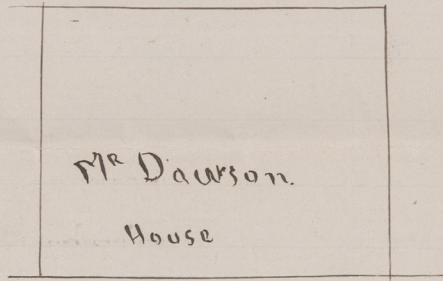 Mr Dawson.
House